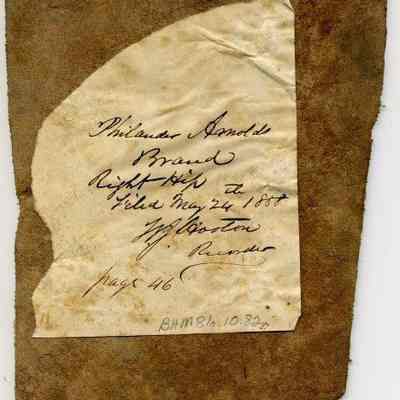 Philander Arnolds
Brand
Right Hip
Filed May 24th 188
Wooton
Recorder
page 46
BHM86.10.32